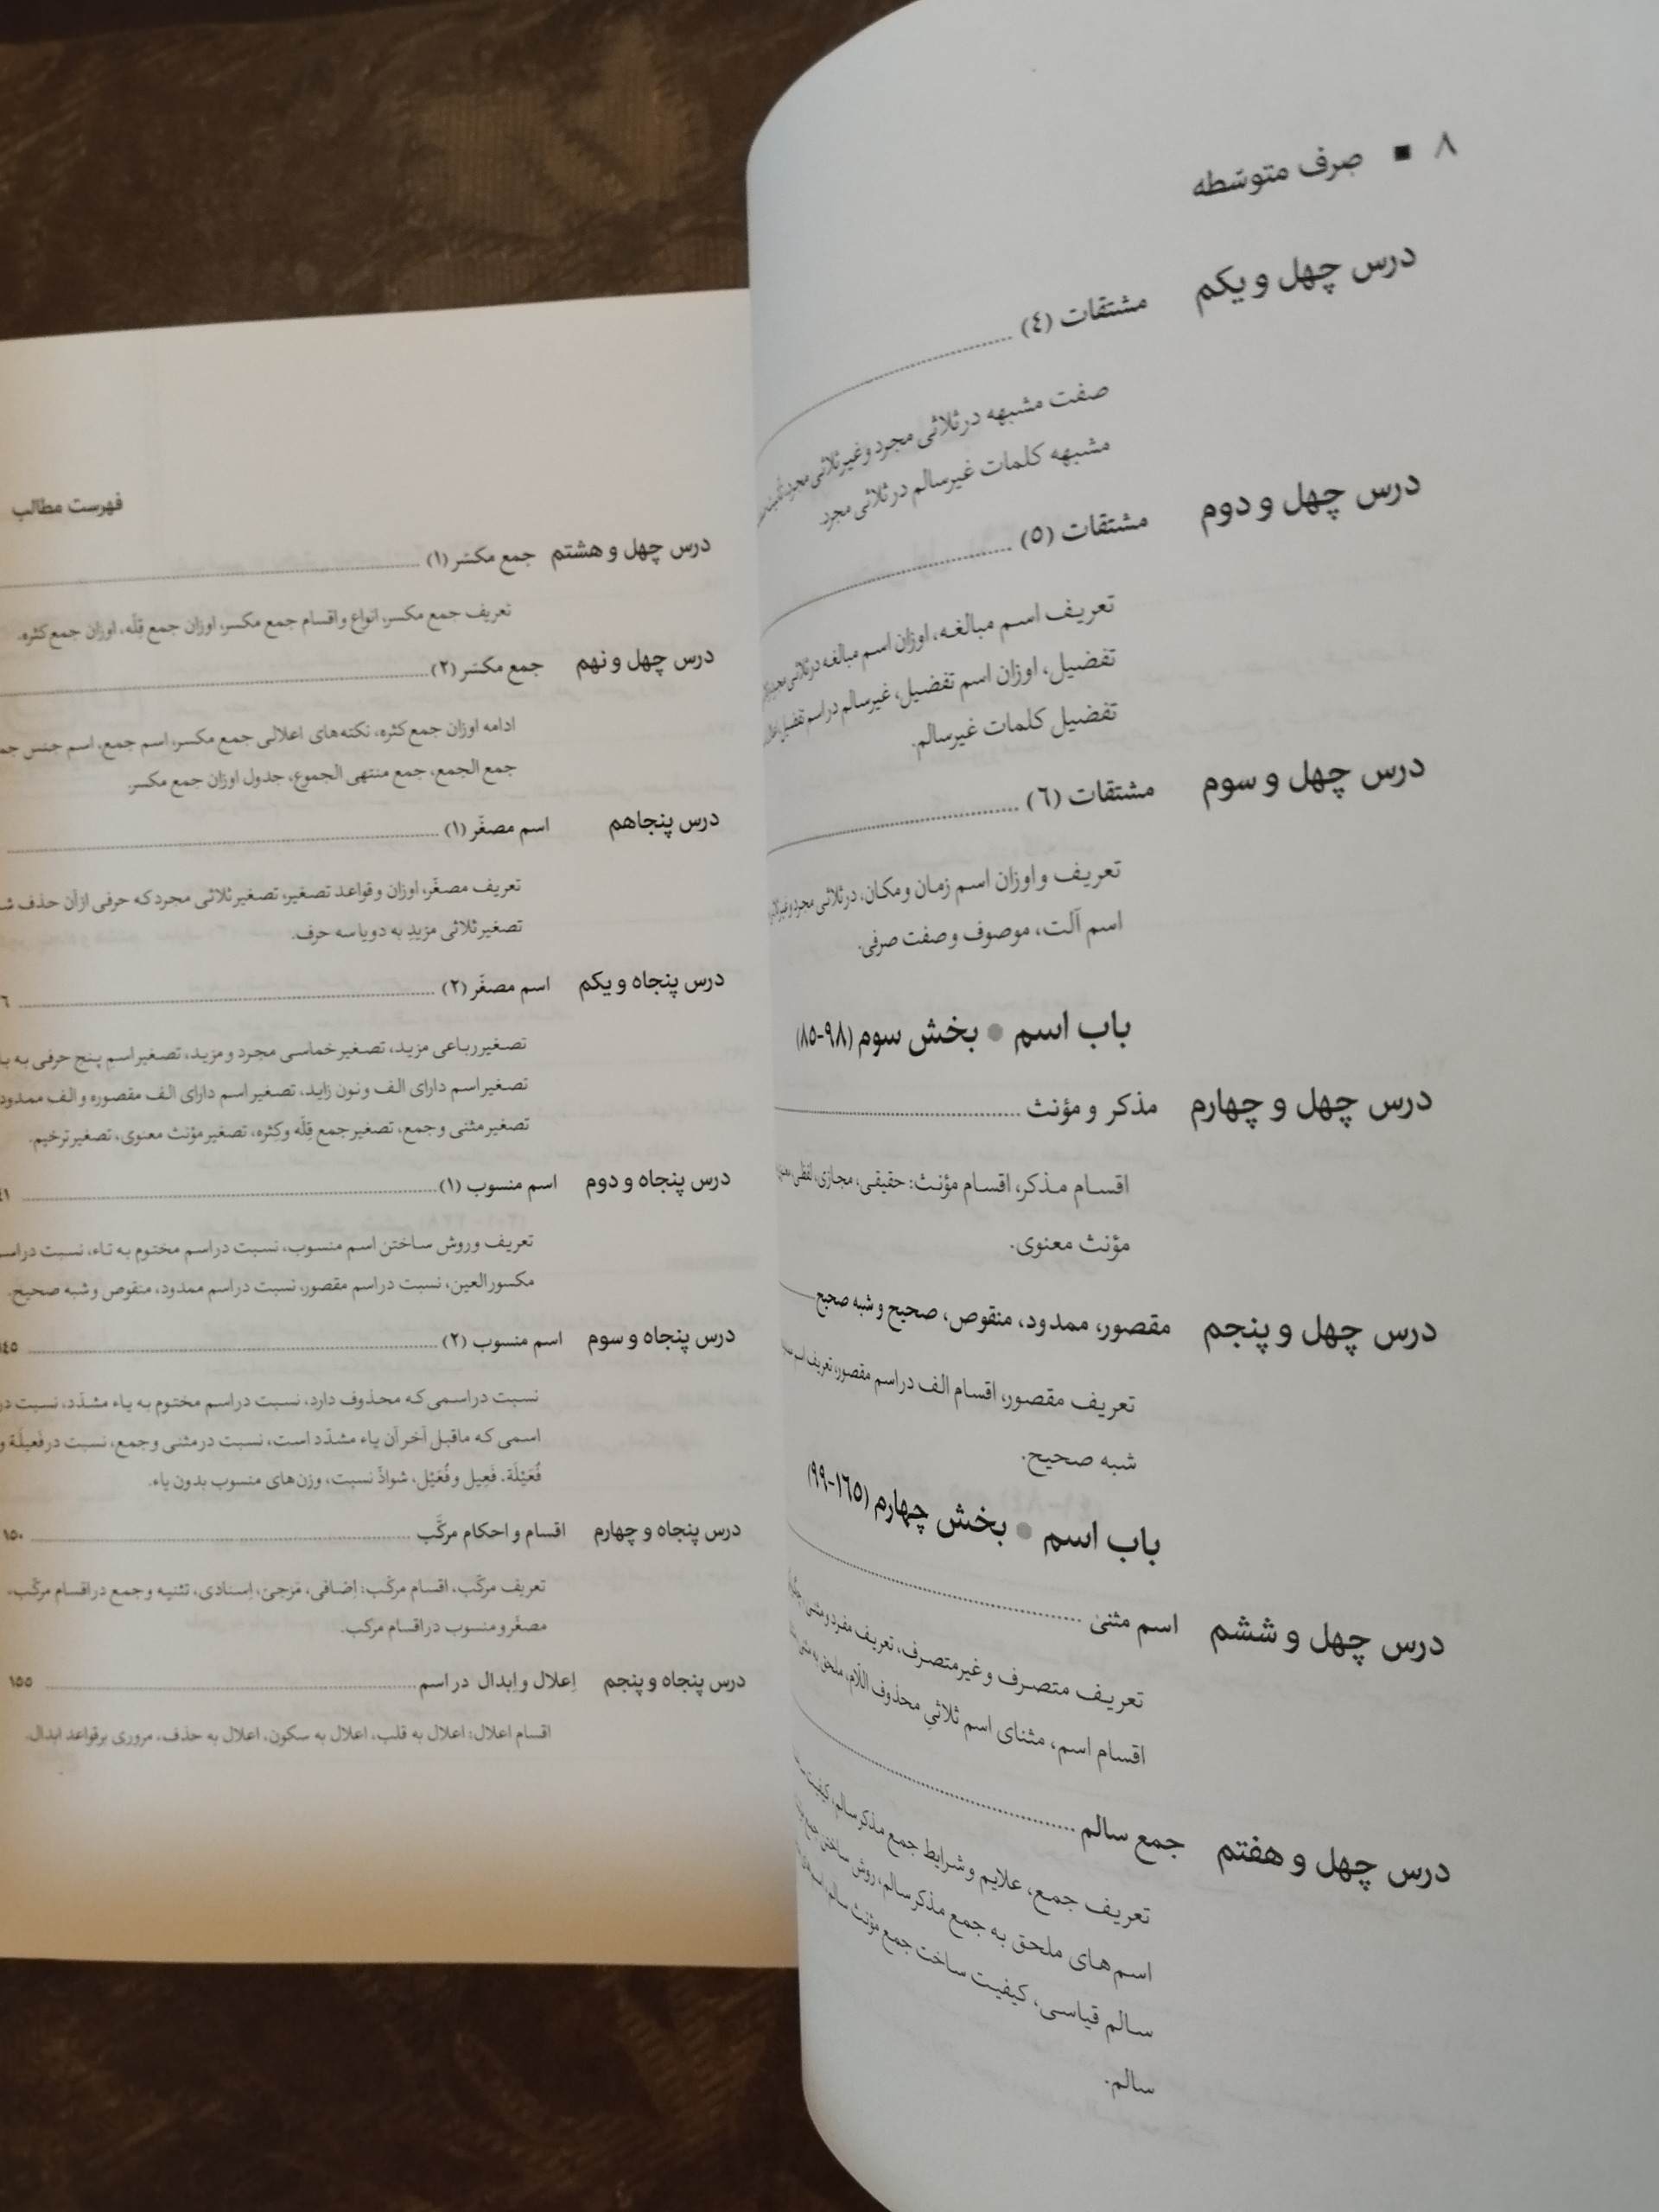 ۸ ■ صرف متوسّطه
درس چهل و یکم مشتقات (٤)
صفت مشبهه در ثلاثی مجرد و غیر ثلاثی مجرد،
مشبهه کلمات غیرسالم در ثلاثی مجرد.
درس چهل و دوم مشتقات (٥)
تعریف اسم مبالغه، اوزان اسم مبالغه در ثلاثی مجرد
تفضیل، اوزان اسم تفضیل، غیرسالم در اسم تفضیل،
تفضیل کلمات غیرسالم.
درس چهل و سوم مشتقات (٦)
تعریف و اوزان اسم زمان و مکان، در ثلاثی مجرد و غیر
اسم آلت، موصوف و صفت صرفی.
باب اسم ● بخش سوم (۹۸-۸۵)
درس چهل و چهارم مذکر و مؤنث
اقسام مذکر، اقسام مؤنث: حقیقی، مجازی، لفظی،
مؤنث معنوی.
درس چهل و پنجم مقصور، ممدود، منقوص، صحیح و شبه صحیح
تعریف مقصور، اقسام الف در اسم مقصور، تعریف اسم
شبه صحیح.
باب اسم ● بخش چهارم (۱٦٥-۹۹)
درس چهل و ششم اسم مثنیٰ
تعریف متصرف و غیرمتصرف، تعریف مفرد و مثنی،
اقسام اسم، مثنای اسم ثلاثیِ محذوف اللّام، ملحق به مثنی
درس چهل و هفتم جمع سالم
تعریف جمع، علایم و شرایط جمع مذکر سالم، کیفیت
اسم‌های ملحق به جمع مذکر سالم، روش ساختن جمع
سالم قیاسی، کیفیت ساخت جمع مؤنث سالم،
سالم.
فهرست مطالب
درس چهل و هشتم جمع مکسّر (۱)
تعریف جمع مکسر، انواع و اقسام جمع مکسر، اوزان جمع قِلّه، اوزان جمع کثره.
درس چهل و نهم جمع مکسّر (۲)
ادامه اوزان جمع کثره، نکته‌های اعلالی جمع مکسر، اسم جمع، اسم جنس
جمع الجمع، جمع منتهی الجموع، جدول اوزان جمع مکسر.
درس پنجاهم اسم مصغّر (۱)
تعریف مصغّر، اوزان و قواعد تصغیر، تصغیر ثلاثی مجرد که حرفی از آن حذف
تصغیر ثلاثی مزید به دو یا سه حرف.
درس پنجاه و یکم اسم مصغّر (۲)
تصغیر رباعی مزید، تصغیر خماسی مجرد و مزید، تصغیر اسمِ پنج حرفی به
تصغیر اسم دارای الف و نون زاید، تصغیر اسم دارای الف مقصوره و الف ممدود
تصغیر مثنی و جمع، تصغیر جمع قِلّه و کِثره، تصغیر مؤنث معنوی، تصغیر ترخیم.
درس پنجاه و دوم اسم منسوب (۱)
تعریف و روش ساختن اسم منسوب، نسبت در اسم مختوم به تاء، نسبت در
مکسور العین، نسبت در اسم مقصور، نسبت در اسم ممدود، منقوص و شبه صحیح.
درس پنجاه و سوم اسم منسوب (۲)
نسبت در اسمی که محذوف دارد، نسبت در اسم مختوم به یاء مشدّد، نسبت در
اسمی که ماقبل آخر آن یاء مشدّد است، نسبت در مثنی و جمع، نسبت در فَعیلَة و
فُعَیْلَة، فَعِیل و فُعَیْل، شواذّ نسبت، وزن‌های منسوب بدون یاء.
درس پنجاه و چهارم اقسام و احکام مرکَّب ۱٥۰
تعریف مرکّب، اقسام مرکّب: إضافی، مَزجیّ، إسنادی، تثنیه و جمع در اقسام مرکّب،
مصغّر و منسوب در اقسام مرکب.
درس پنجاه و پنجم إعلال و إبدال در اسم ۱٥٥
اقسام اعلال: اعلال به قلب، اعلال به سکون، اعلال به حذف، مروری بر قواعد ابدال.